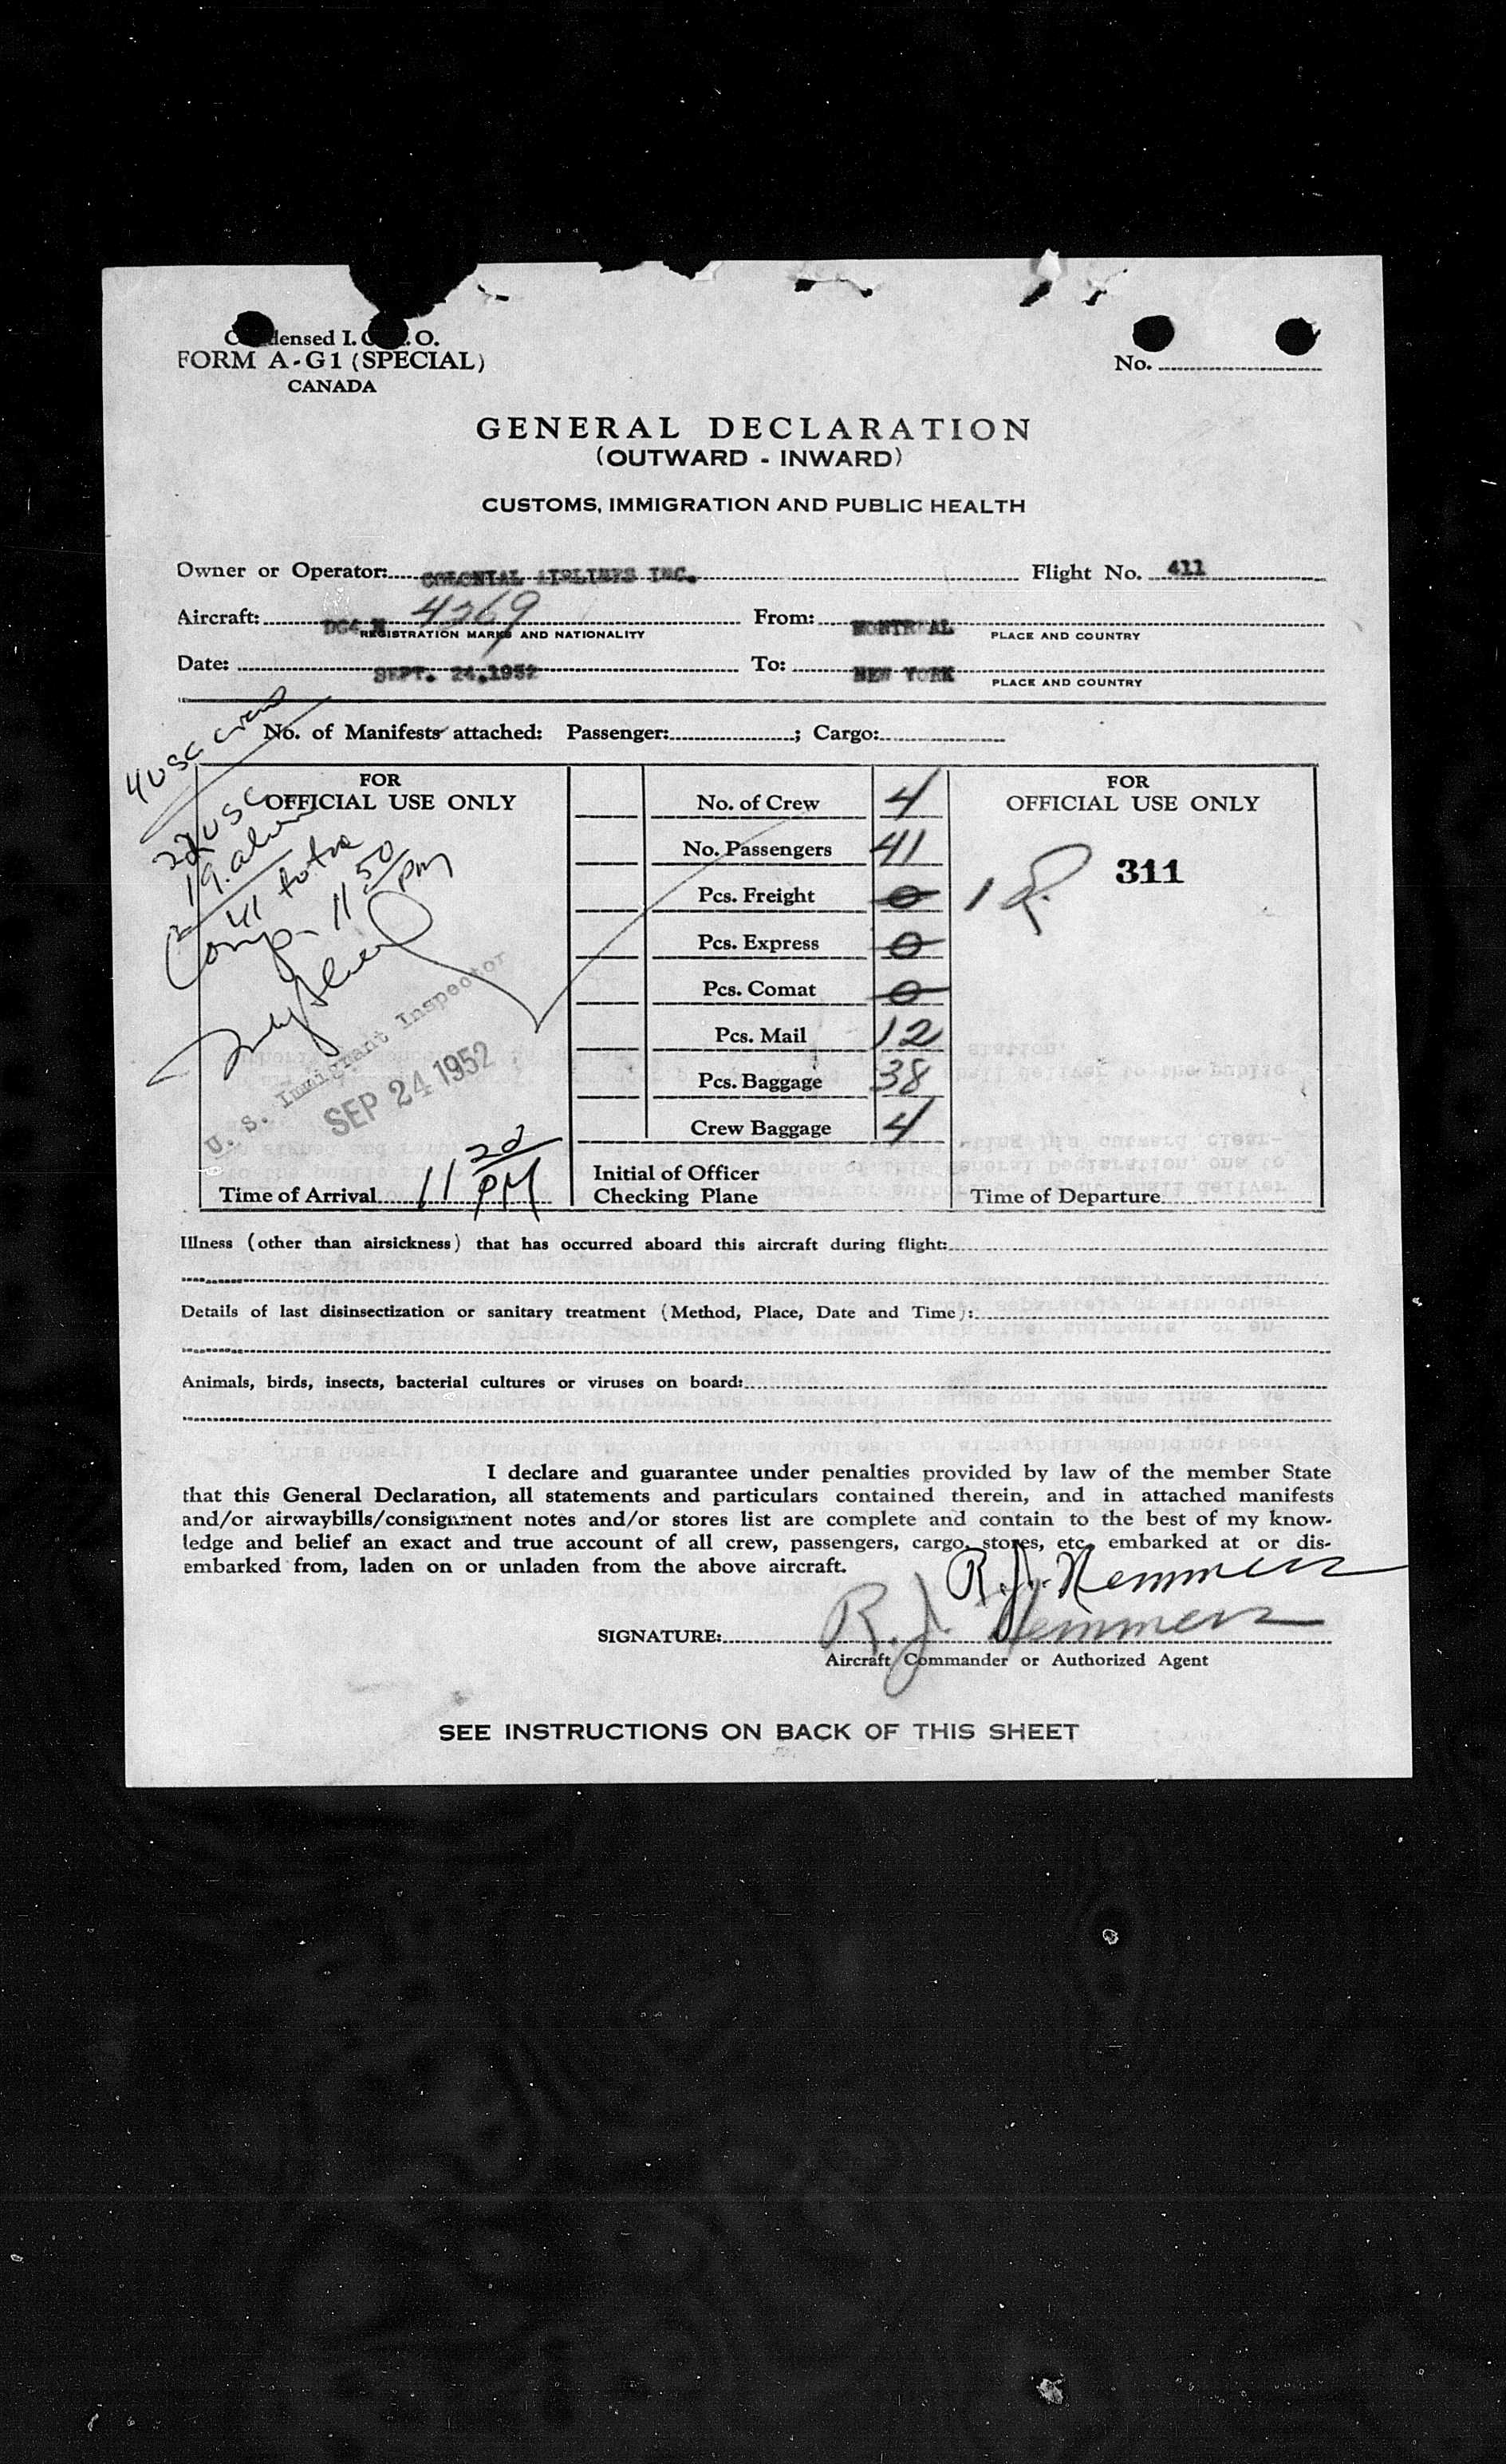 Condensed I. C. A. O.
FORM A-G1 (SPECIAL)
CANADA
No.
GENERAL DECLARATION
(OUTWARD - INWARD)
CUSTOMS, IMMIGRATION AND PUBLIC HEALTH
Owner or Operator: COLONIAL AIRLINES INC. Flight No. 411
Aircraft: DC4 N 4269 From: MONTREAL
REGISTRATION MARKS AND NATIONALITY PLACE AND COUNTRY
Date: SEPT. 24,1952 To: NEW YORK
PLACE AND COUNTRY
No. of Manifests attached: Passenger: ; Cargo:
4 USC crew
22 USC
19. alien
41 total
Comp. 11 50 pm
U. S. Immigrant Inspector
SEP 24 1952
FOR
OFFICIAL USE ONLY
Time of Arrival 11 22 PM
No. of Crew 4
No. Passengers 41
Pcs. Freight 0
Pcs. Express 0
Pcs. Comat 0
Pcs. Mail 12
Pcs. Baggage 38
Crew Baggage 4
Initial of Officer
Checking Plane
FOR
OFFICIAL USE ONLY
311
Time of Departure
Illness (other than airsickness) that has occurred aboard this aircraft during flight:
Details of last disinsectization or sanitary treatment (Method, Place, Date and Time):
Animals, birds, insects, bacterial cultures or viruses on board:
I declare and guarantee under penalties provided by law of the member State
that this General Declaration, all statements and particulars contained therein, and in attached manifests
and/or airwaybills/consignment notes and/or stores list are complete and contain to the best of my know-
ledge and belief an exact and true account of all crew, passengers, cargo, stores, etc. embarked at or dis-
embarked from, laden on or unladen from the above aircraft.
R. J. Hemmerr
SIGNATURE: R. J. Hemmerr
Aircraft Commander or Authorized Agent
SEE INSTRUCTIONS ON BACK OF THIS SHEET